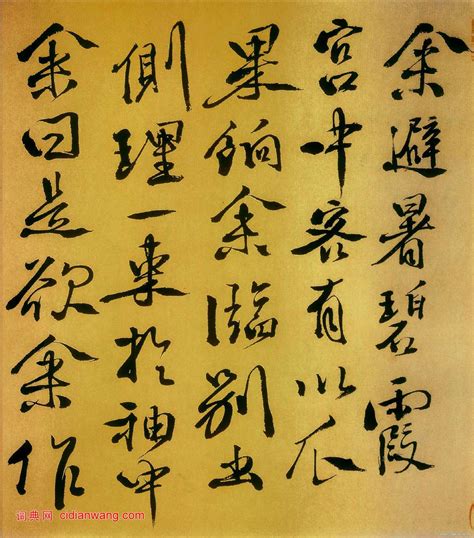 余避暑碧霞
宮中客有以瓜
果餉余臨別出
側理一束於袖中
余曰是欲余作
词典网: cidianwang.com